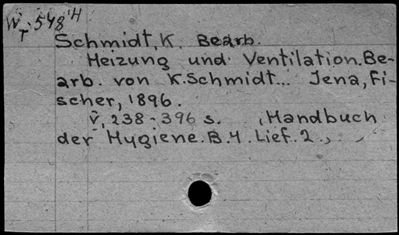 W-548 H
T
Schmidt, K. Bearb.
Heizung und Ventilation. Be-
arb. von K. Schmidt... Jena, Fi-
scher, 1896.
V, 238-396 s. , Handbuch
der Hygiene. B. 4. Lief. 2.,